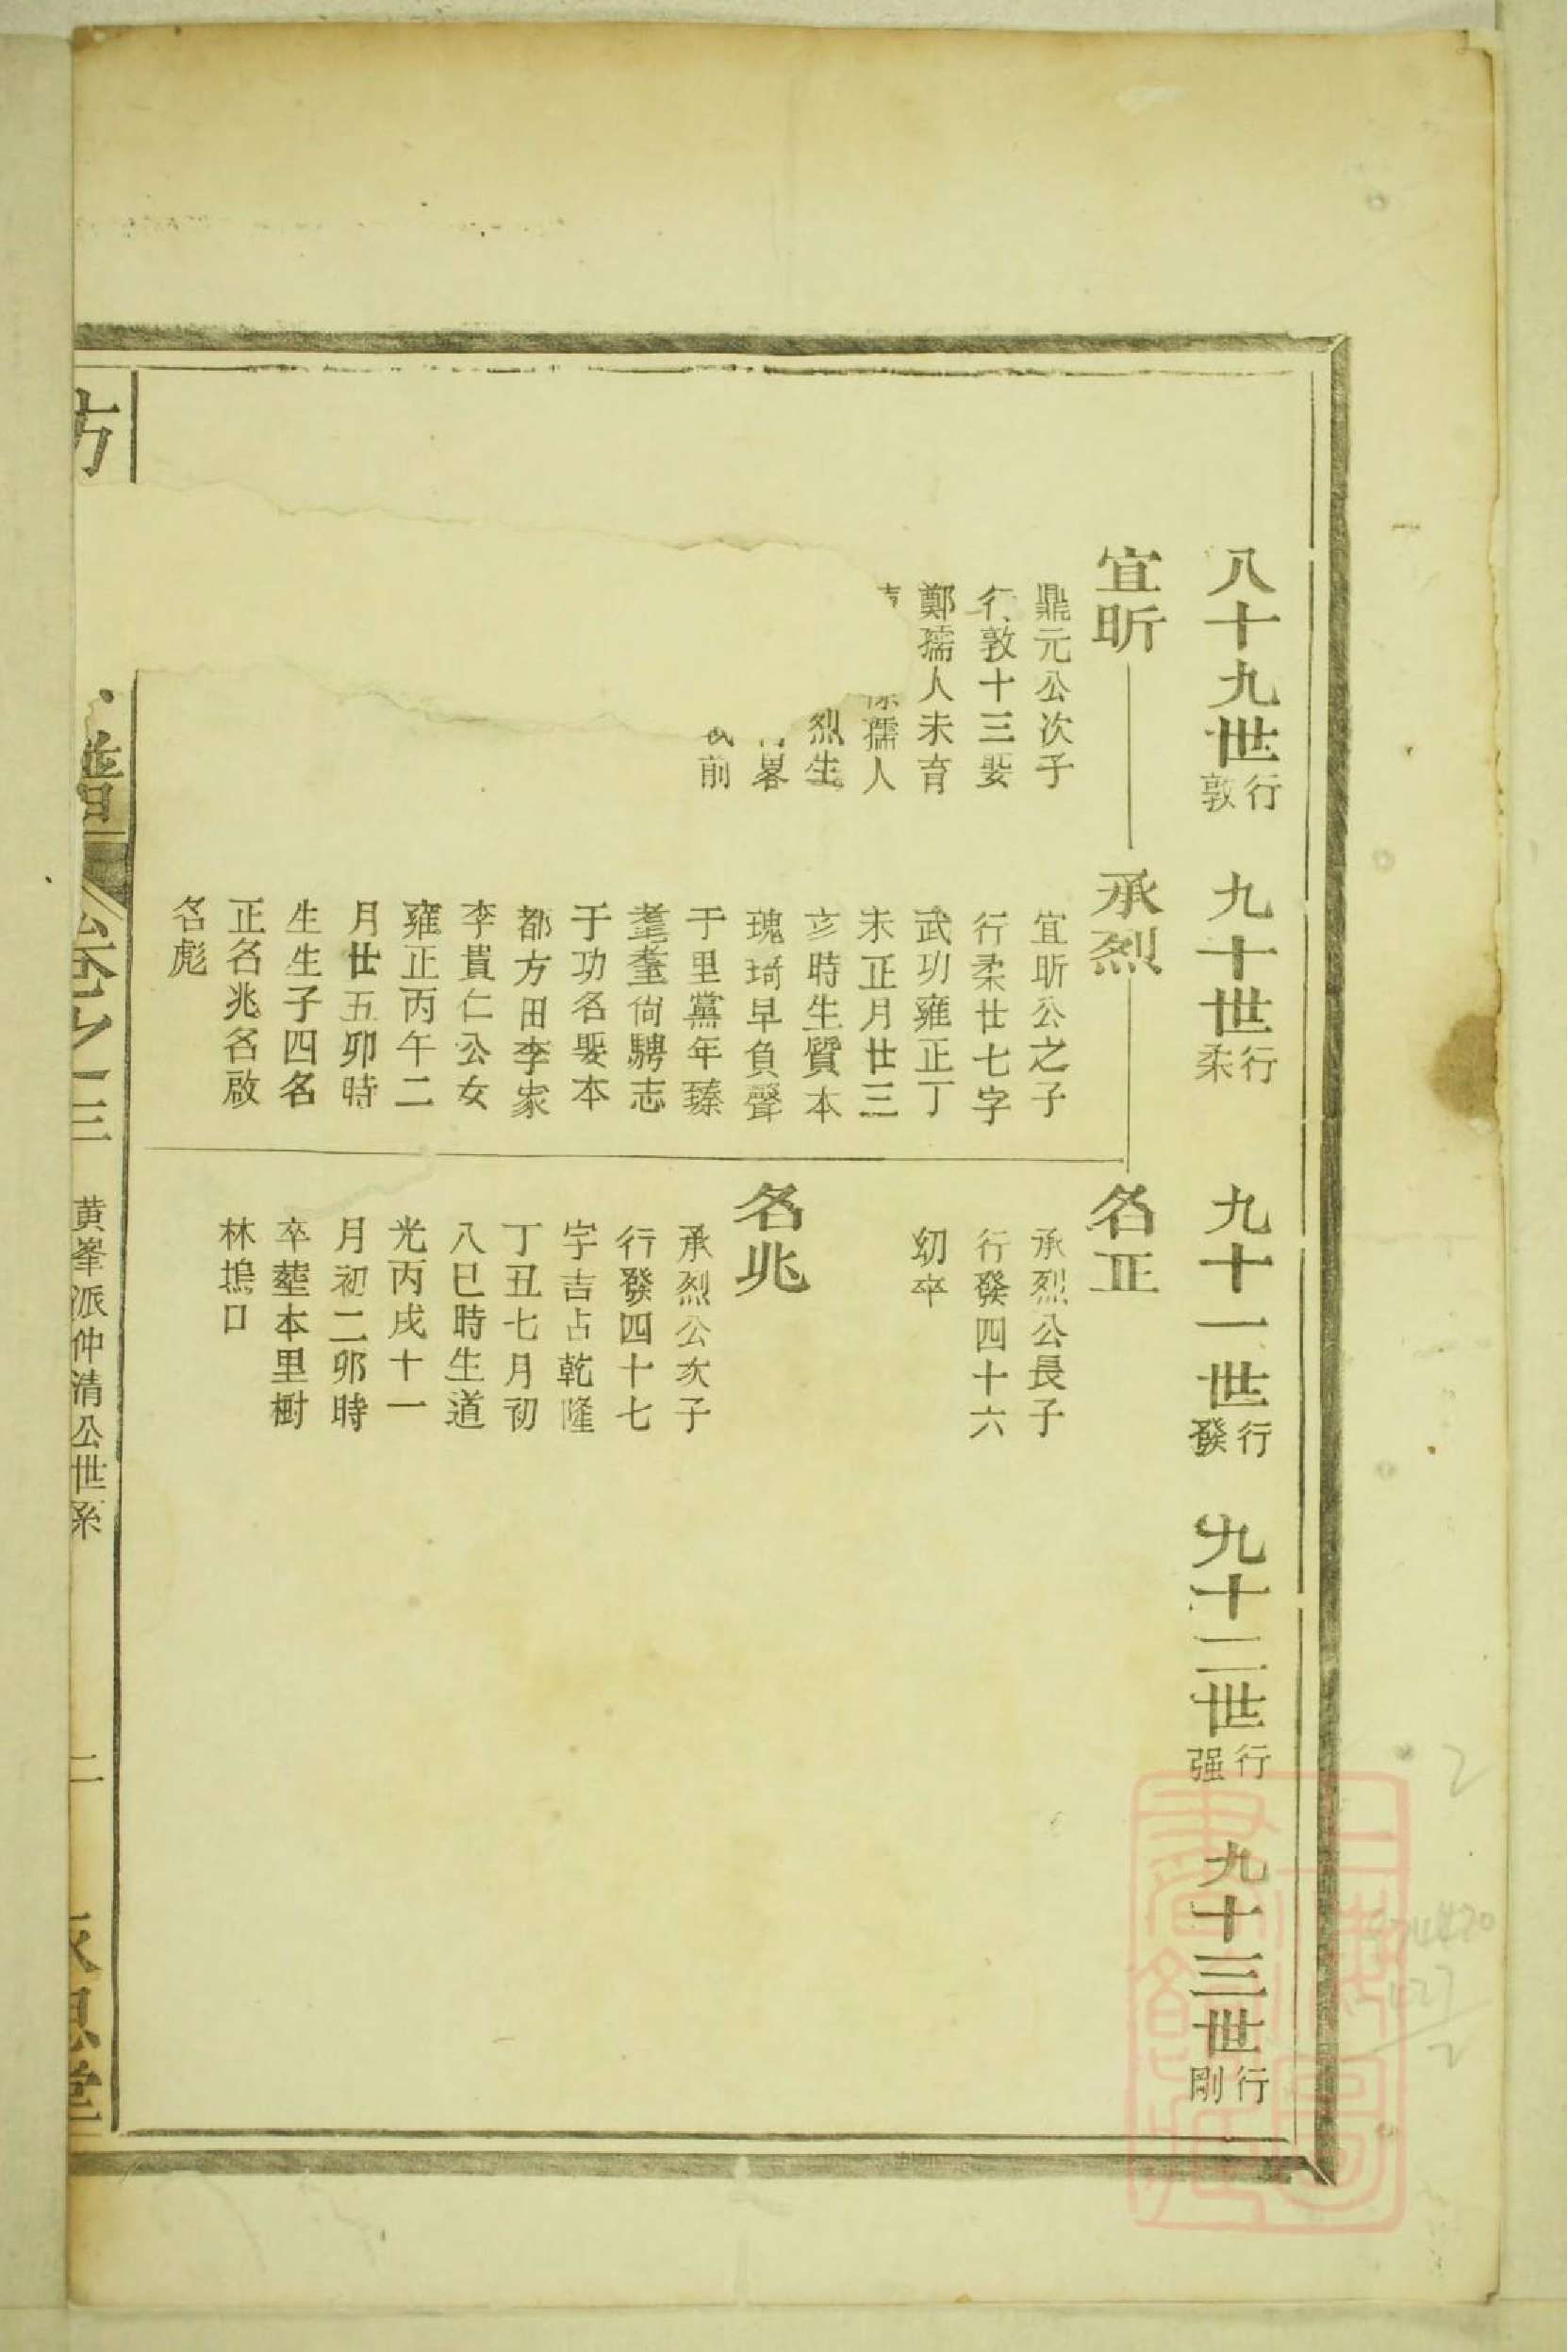 八十九世 行敦
九十世 行柔
九十一世 行發
九十二世 行强
九十三世 行剛
宜昕
鼎元公次子
行敦十三娶
鄭孺人未育
孺人
烈生
畧
前
承烈
宜昕公之子
行柔廿七字
武功雍正丁
未正月廿三
亥時生質本
瑰琦早負聲
于里黨年臻
耄耋尙騁志
于功名娶本
都方田李家
李貴仁公女
雍正丙午二
月廿五卯時
生生子四名
正名兆名啟
名彪
名正
承烈公長子
行發四十六
幼卒
名兆
承烈公次子
行發四十七
字吉占乾隆
丁丑七月初
八巳時生道
光丙戌十一
月初二卯時
卒塟本里樹
林塢口
方
譜
卷之三
黄峯派仲清公世系
二
思堂